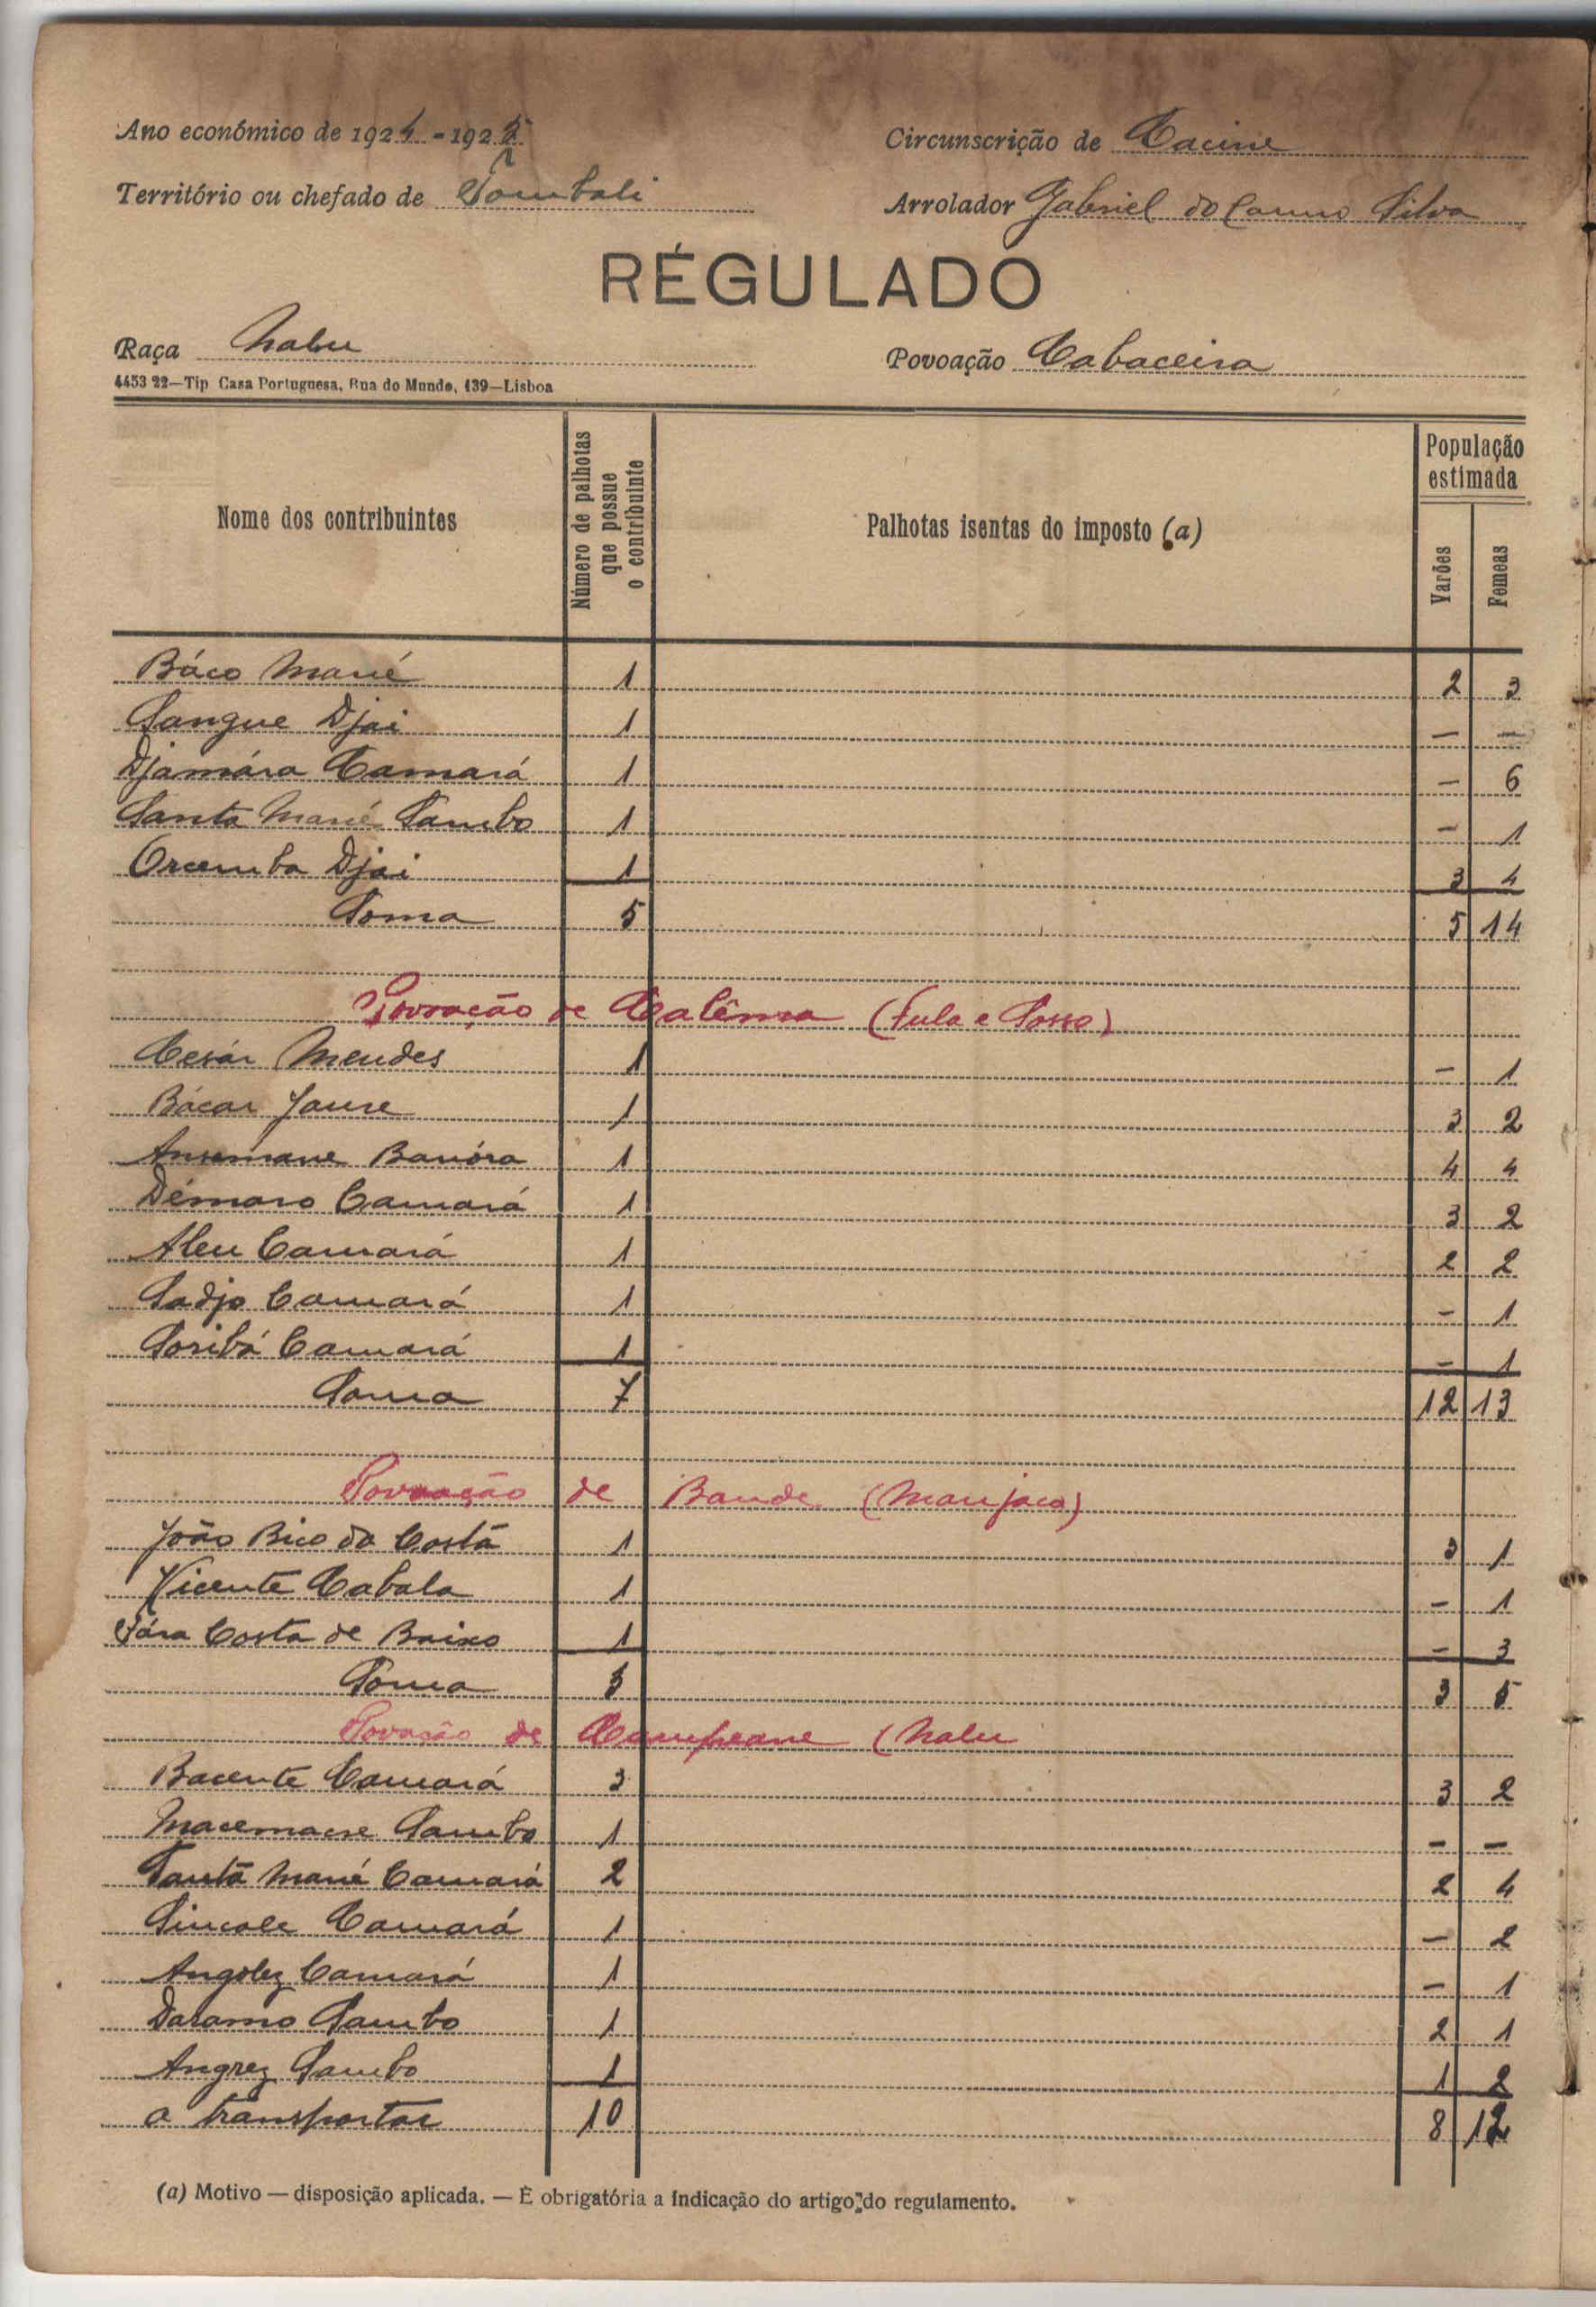 Ano económico de 1924-1925
Circunscrição de Cacine
Território ou chefado de Tombali
Arrolador Gabriel do Carmo Silva
RÉGULADO
Raça Nalu
Povoação Cabaceira
4453 22—Tip Casa Portuguesa, Rua do Mundo, 139—Lisboa
Nome dos contribuintes
Número de palhotas que possue o contribuinte
Palhotas isentas do imposto (a)
População estimada
Varões
Femeas
Báco Mané 1 2 3
Sangue Djai 1 — —
Djamára Camará 1 — 6
Santa Mané Sambo 1 — 1
Orcemba Djai 1 3 4
Soma 5 5 14
Povoação de Calêma (Fula e Sosso)
Cesár Mendes 1 — 1
Bácar Jaure 1 3 2
Ansumane Banóra 1 4 4
Démaro Camará 1 3 2
Aleu Camará 1 2 2
Sadjo Camará 1 — 1
Soribá Camará 1 — 1
Soma 7 12 13
Povoação de Bande (Manjaca)
João Bico da Costa 1 3 1
Vicente Cabala 1 — 1
Tára Costa de Baixo 1 — 3
Soma 3 3 5
Povoação de Campeane (Nalu
Bacente Camará 3 3 2
Sambo 1 — —
Santa Mané Camará 2 2 4
Sincale Camará 1 — 2
Angolez Camará 1 — 1
Daramo Sambo 1 2 1
Angrez Sambo 1 1 2
a transportar 10 8 12
(a) Motivo — disposição aplicada. — É obrigatória a indicação do artigo do regulamento.